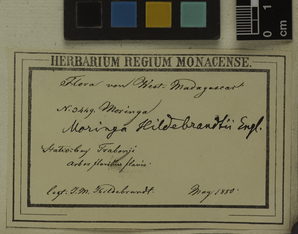 0 1 cm
HERBARIUM REGIUM MONACENSE.
Flora von West-Madagascar
N. 3449. Moringa
Moringa Hildebrandtii Engl.
Arbor floribus flavis.
legt. J. M. Hildebrandt. May 1880.